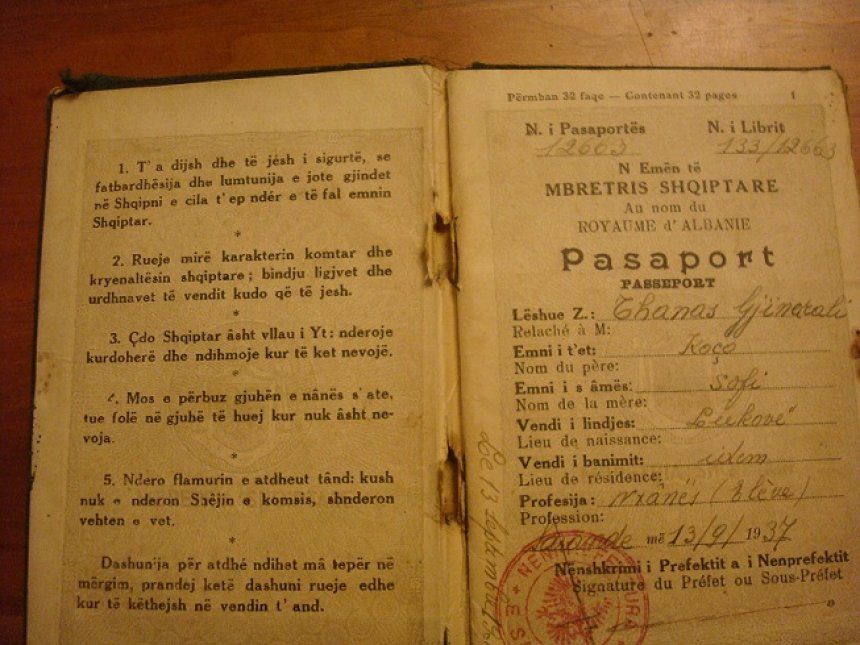 1. T'a dijsh dhe të jésh i sigurtë, se
fatbardhësija dhe lumtunija e jote gjindet
në Shqipni e cila t'ep ndér e të fal emnin
Shqiptar.
*
2. Rueje mirë karakterin komtar dhe
kryenaltësin shqiptare; bindju ligjvet dhe
urdhnavet të vendit kudo që të jesh.
*
3. Çdo Shqiptar âsht vllau i Yt: nderoje
kurdoherë dhe ndihmoje kur të ket nevojë.
*
4. Mos e përbuz gjuhën e nânës s'ate,
tue folë në gjuhë të huej kur nuk âsht ne-
voja.
*
5. Ndero flamurin e atdheut tând: kush
nuk e nderon Shêjin e komsis, shnderon
vehten e vet.
*
Dashunija për atdhé ndihet mâ tepër në
mërgim, prandej ketë dashuni rueje edhe
kur të këthejsh në vendin t'and.
Përmban 32 faqe — Contenant 32 pages 1
N. i Pasaportës N. i Librit
12603 133/12663
N Emën të
MBRETRIS SHQIPTARE
Au nom du
ROYAUME d'ALBANIE
Pasaport
PASSEPORT
Lëshue Z.: Thanas Gjinarali
Relaché à M:
Emni i t'et: Koço
Nom du père:
Emni i s âmës: Sofi
Nom de la mère:
Vendi i lindjes: Lukovë
Lieu de naissance:
Vendi i banimit: idem
Lieu de résidence:
Profesija: nxanës (élève)
Profession:
Sarandë më 13/9/1937
Nënshkrimi i Prefektit a i Nenprefektit
Signature du Préfet ou Sous-Préfet